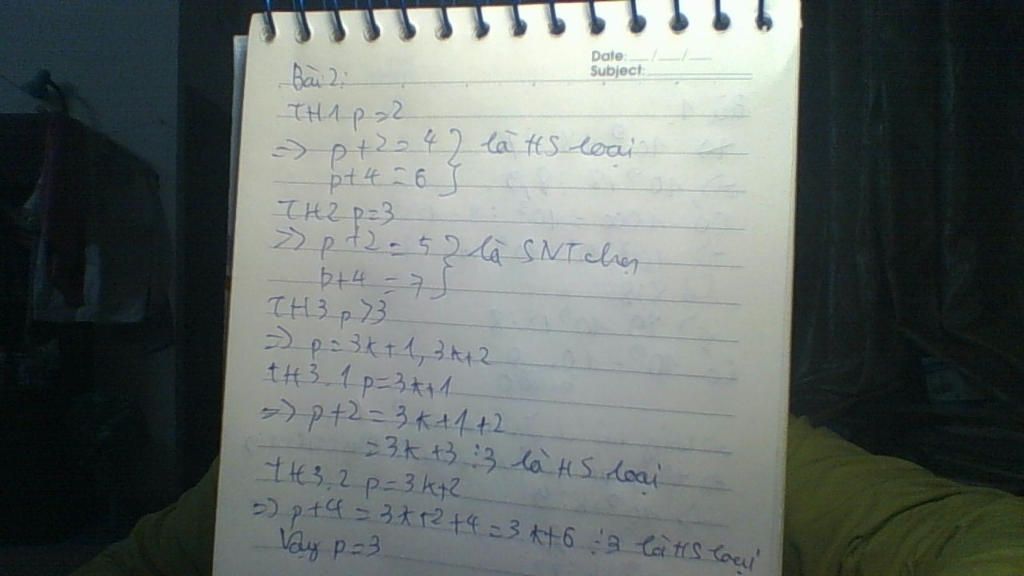 Date: __/__/__
Subject:
Bài 2:
TH1 p=2
=> p+2=4 } là HS loại
p+4=6
TH2 p=3
=> p+2=5 } là SNT chọn
p+4=7
TH3 p>3
=> p=3k+1, 3k+2
TH3.1 p=3k+1
=> p+2=3k+1+2
=3k+3 ⋮3 là HS loại
TH3.2 p=3k+2
=> p+4=3k+2+4=3k+6 ⋮3 là HS loại
Vậy p=3